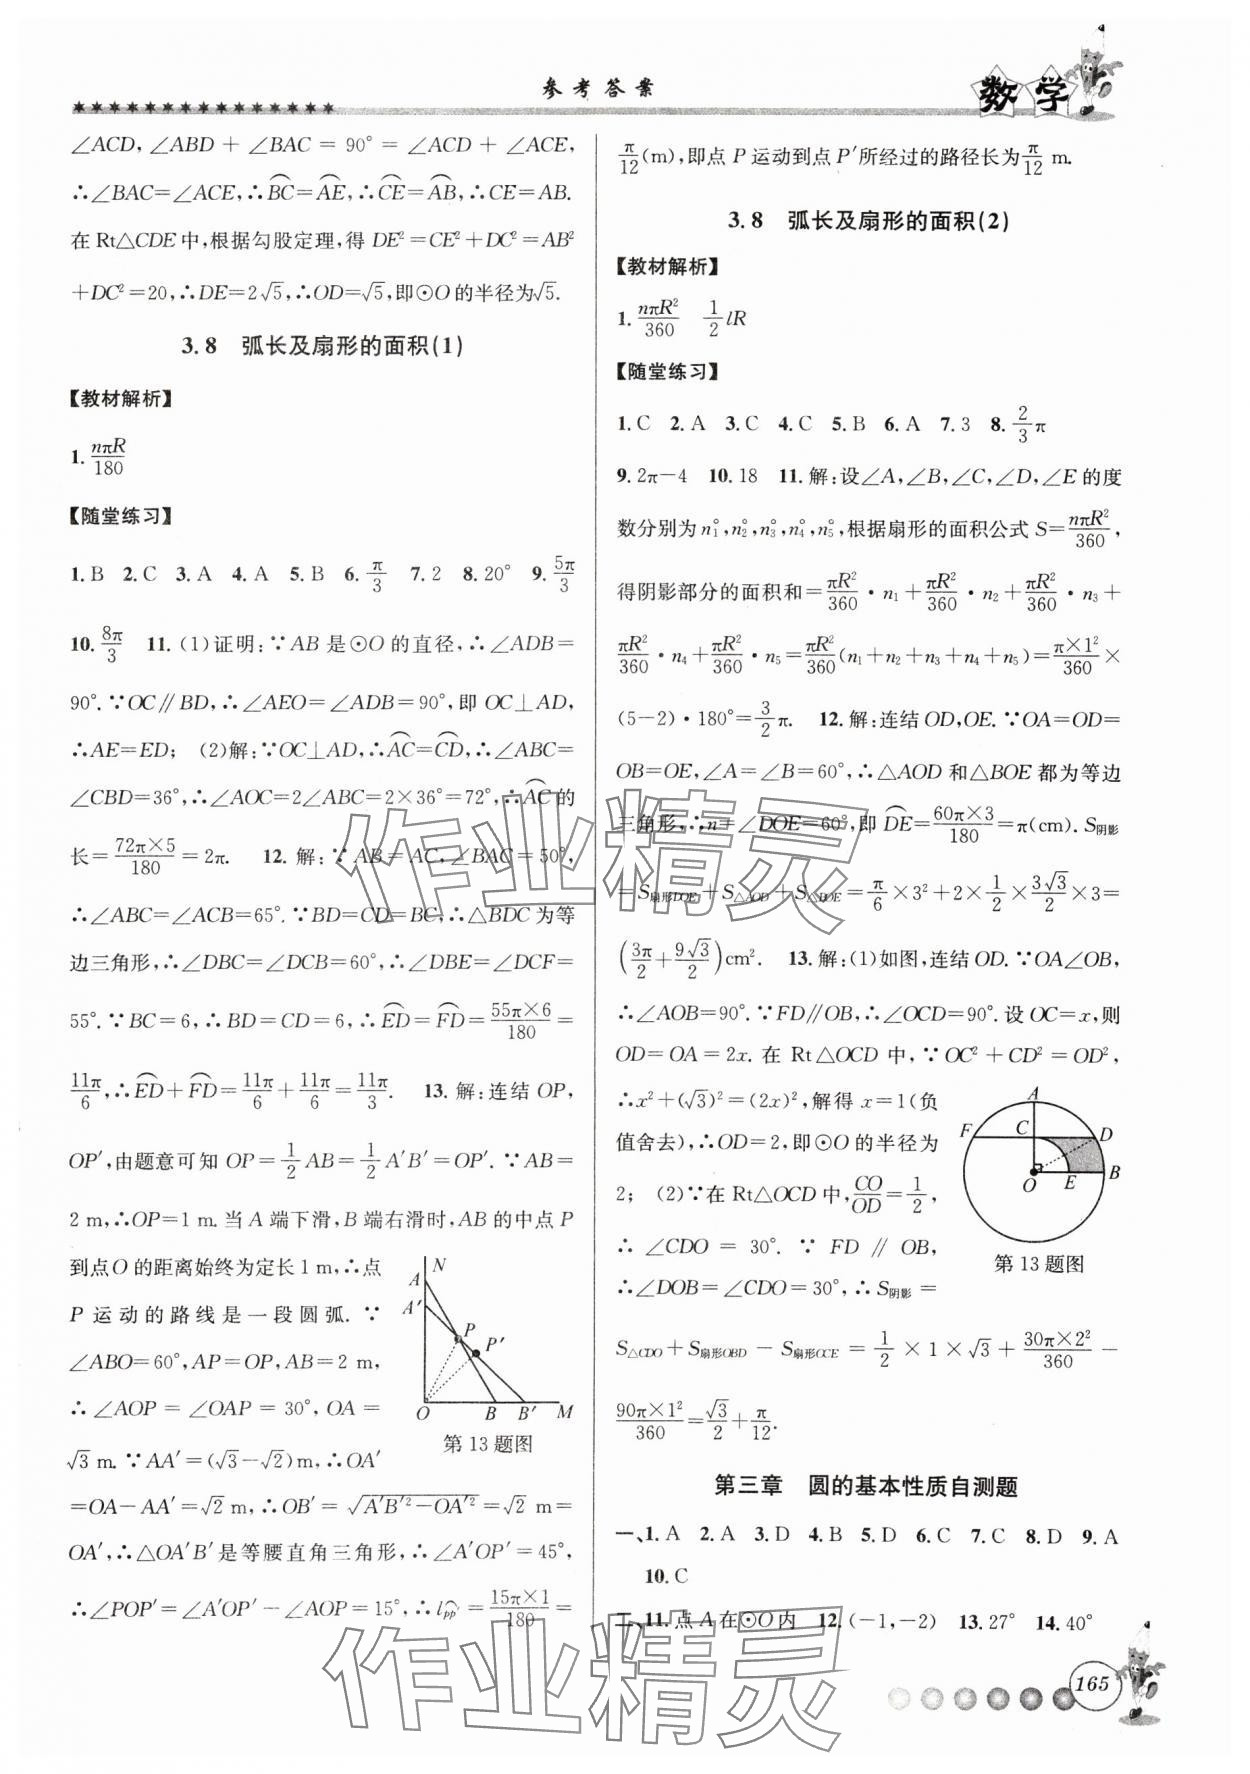 参考答案
数学
∠ACD,∠ABD+∠BAC=90°=∠ACD+∠ACE,
∴∠BAC=∠ACE,∴⌒BC=⌒AE,∴⌒CE=⌒AB,∴CE=AB.
在Rt△CDE中,根据勾股定理,得DE²=CE²+DC²=AB²
+DC²=20,∴DE=2√5,∴OD=√5,即⊙O的半径为√5.
3.8 弧长及扇形的面积(1)
【教材解析】
1. nπR/180
【随堂练习】
1.B 2.C 3.A 4.A 5.B 6. π/3 7.2 8.20° 9. 5π/3
10. 8π/3 11.(1)证明:∵AB是⊙O的直径,∴∠ADB=
90°.∵OC∥BD,∴∠AEO=∠ADB=90°,即OC⊥AD,
∴AE=ED; (2)解:∵OC⊥AD,∴⌒AC=⌒CD,∴∠ABC=
∠CBD=36°,∴∠AOC=2∠ABC=2×36°=72°,∴⌒AC的
长=72π×5/180=2π. 12.解:∵AB=AC,∠BAC=50°,
∴∠ABC=∠ACB=65°.∵BD=CD=BC,∴△BDC为等
边三角形,∴∠DBC=∠DCB=60°,∴∠DBE=∠DCF=
55°.∵BC=6,∴BD=CD=6,∴⌒ED=⌒FD=55π×6/180=
11π/6,∴⌒ED+⌒FD=11π/6+11π/6=11π/3. 13.解:连结OP,
OP′,由题意可知OP=1/2AB=1/2A′B′=OP′.∵AB=
2 m,∴OP=1 m.当A端下滑,B端右滑时,AB的中点P
到点O的距离始终为定长1 m,∴点
P运动的路线是一段圆弧.∵
∠ABO=60°,AP=OP,AB=2 m,
∴∠AOP=∠OAP=30°,OA=
√3 m.∵AA′=(√3-√2)m,∴OA′
N
A
A′
P
P′
O B B′ M
第13题图
=OA-AA′=√2 m,∴OB′=√(A′B′²-OA′²)=√2 m=
OA′,∴△OA′B′是等腰直角三角形,∴∠A′OP′=45°,
∴∠POP′=∠A′OP′-∠AOP=15°,∴l⌒pp′=15π×1/180=
π/12(m),即点P运动到点P′所经过的路径长为π/12 m.
3.8 弧长及扇形的面积(2)
【教材解析】
1. nπR²/360 1/2 lR
【随堂练习】
1.C 2.A 3.C 4.C 5.B 6.A 7.3 8. 2/3π
9.2π-4 10.18 11.解:设∠A,∠B,∠C,∠D,∠E的度
数分别为n₁°,n₂°,n₃°,n₄°,n₅°,根据扇形的面积公式S=nπR²/360,
得阴影部分的面积和=πR²/360·n₁+πR²/360·n₂+πR²/360·n₃+
πR²/360·n₄+πR²/360·n₅=πR²/360(n₁+n₂+n₃+n₄+n₅)=π×1²/360×
(5-2)·180°=3/2π. 12.解:连结OD,OE.∵OA=OD=
OB=OE,∠A=∠B=60°,∴△AOD和△BOE都为等边
三角形,∴n=∠DOE=60°,即⌒DE=60π×3/180=π(cm).S阴影
=S扇形DOE+S△AOD+S△BOE=π/6×3²+2×1/2×3√3/2×3=
(3π/2+9√3/2)cm². 13.解:(1)如图,连结OD.∵OA∠OB,
∴∠AOB=90°.∵FD∥OB,∴∠OCD=90°.设OC=x,则
OD=OA=2x.在Rt△OCD中,∵OC²+CD²=OD²,
∴x²+(√3)²=(2x)²,解得x=1(负
值舍去),∴OD=2,即⊙O的半径为
2; (2)∵在Rt△OCD中,CO/OD=1/2,
∴∠CDO=30°.∵FD∥OB,
∴∠DOB=∠CDO=30°,∴S阴影=
A
F C D
O E B
第13题图
S△CDO+S扇形OBD-S扇形OCE=1/2×1×√3+30π×2²/360-
90π×1²/360=√3/2+π/12.
第三章 圆的基本性质自测题
一、1.A 2.A 3.D 4.B 5.D 6.C 7.C 8.D 9.A
10.C
二、11.点A在⊙O内 12.(-1,-2) 13.27° 14.40°
165
作业精灵
作业精灵